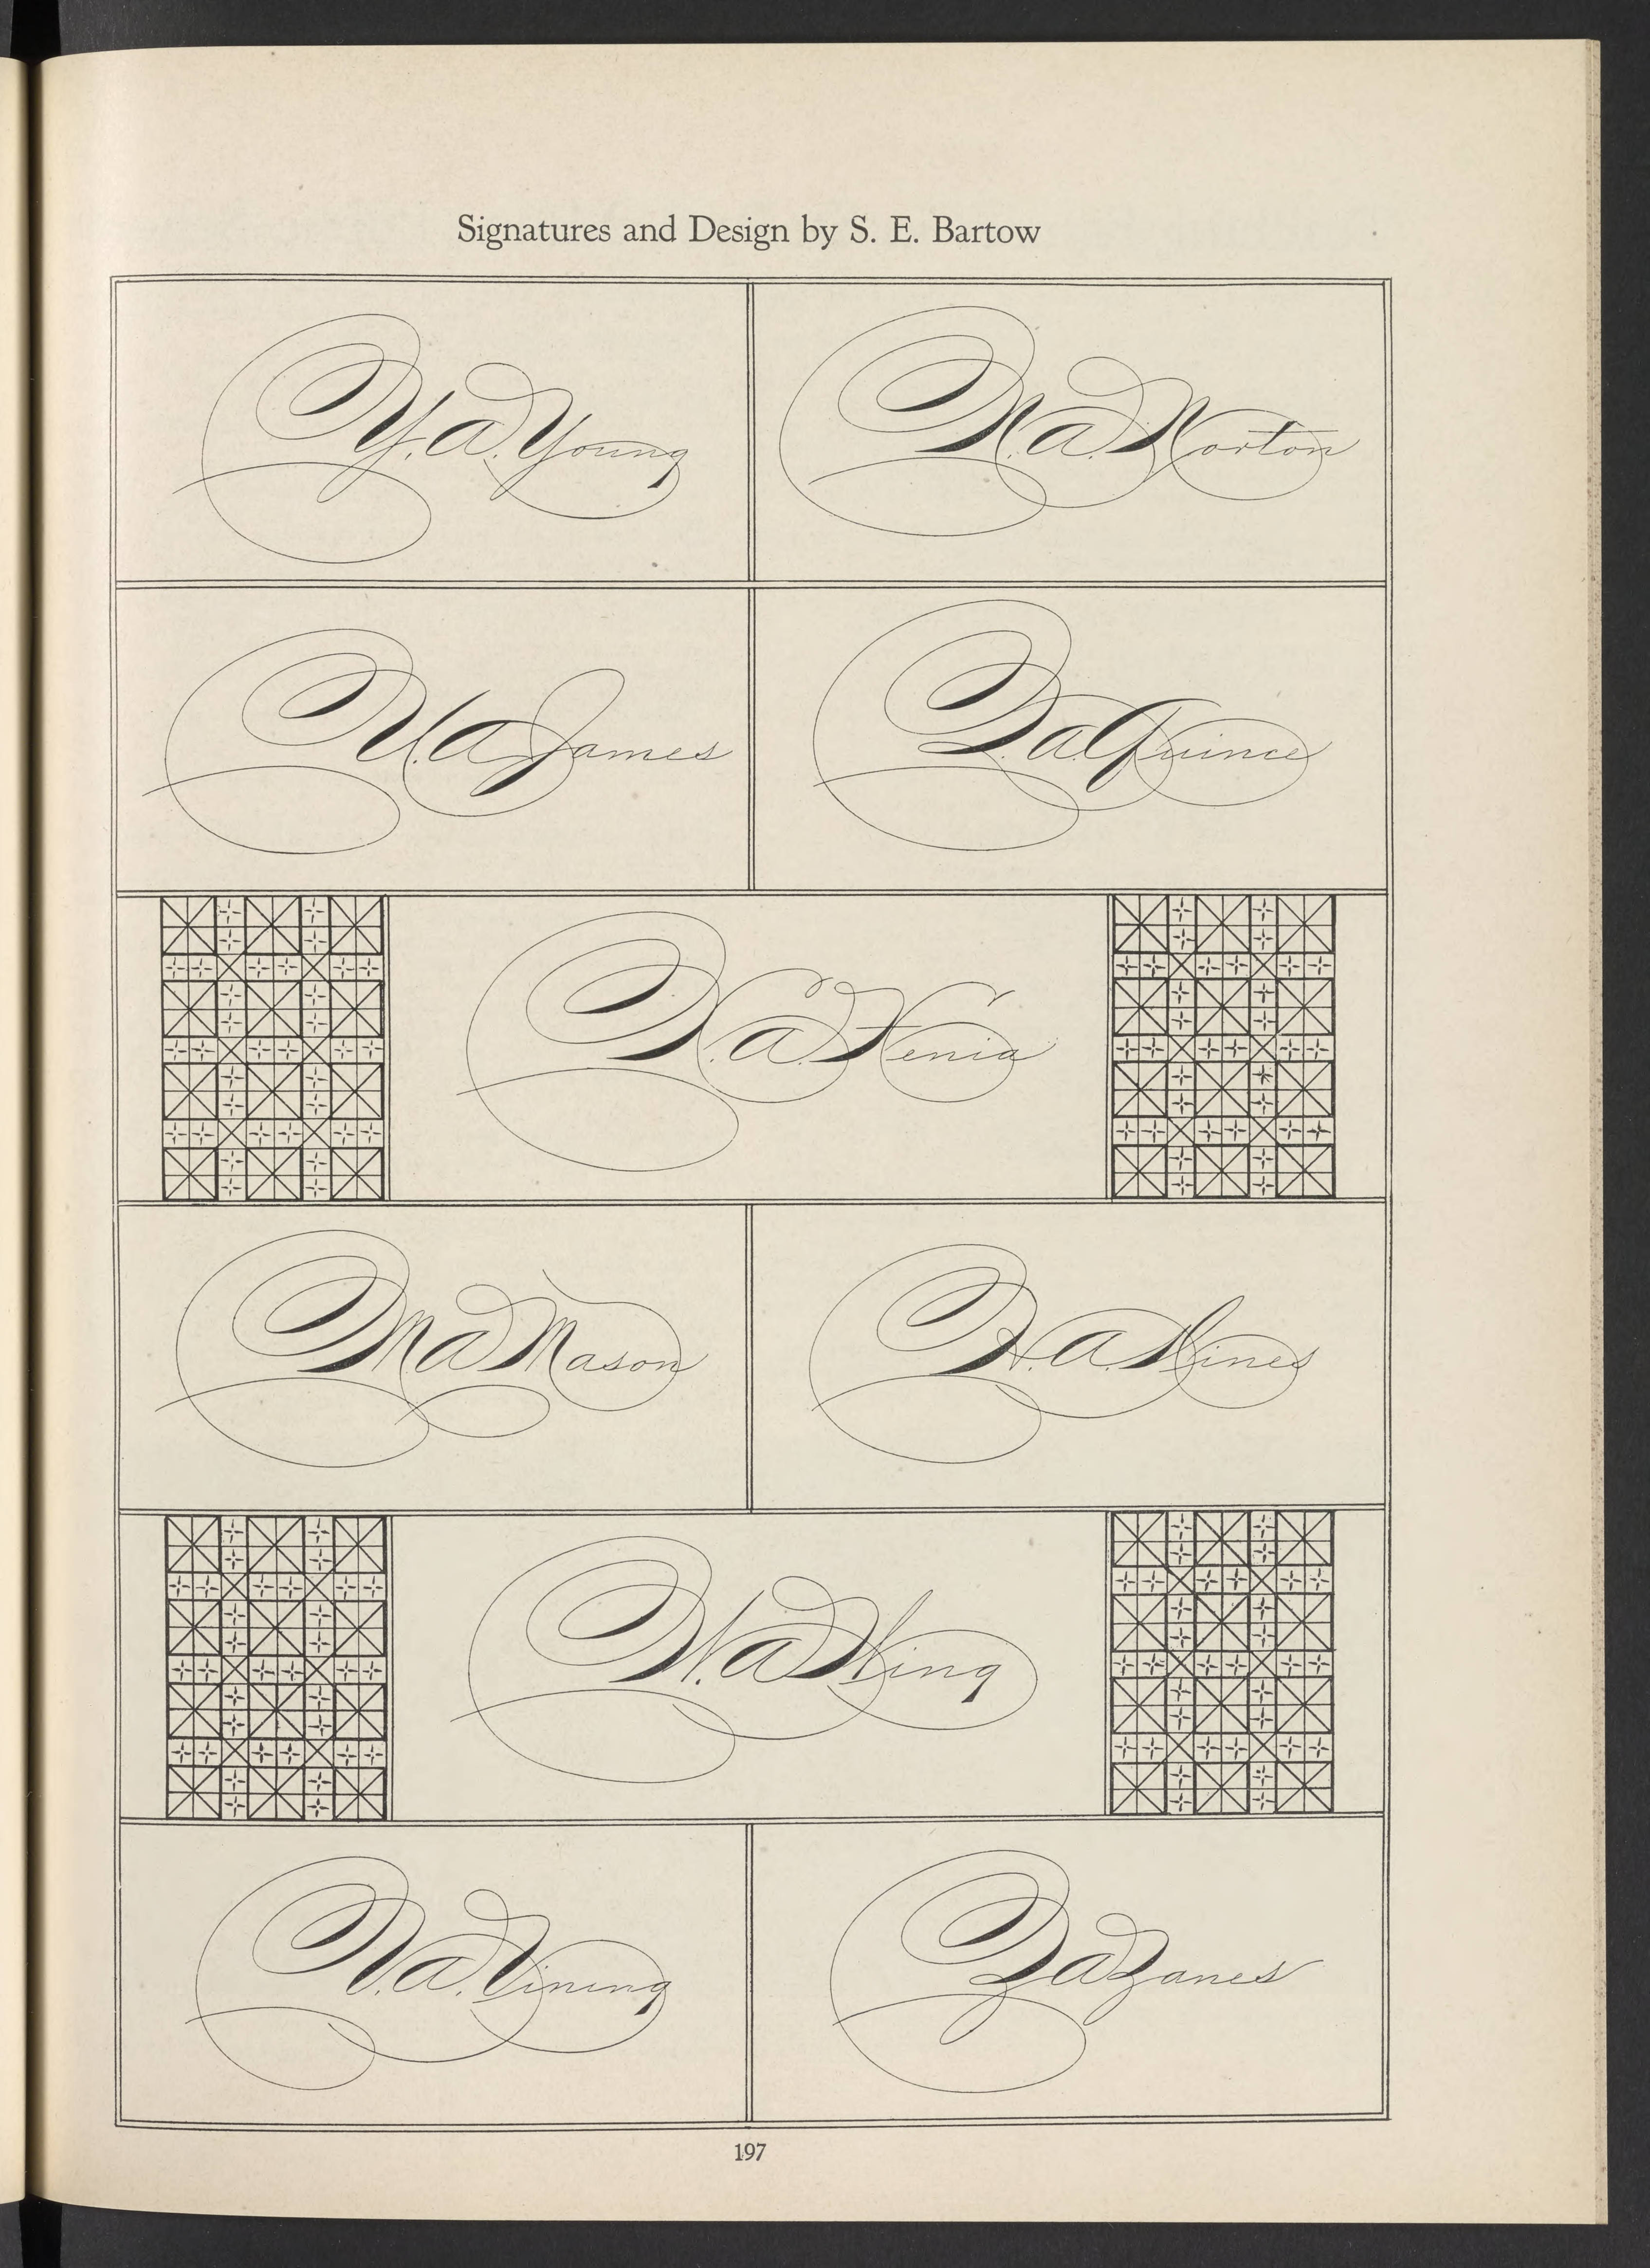 Signatures and Design by S. E. Bartow
Y. A. Young
N. A. Norton
U. A. James
Q. A. Quince
X. A. Xenia
M. A. Mason
H. A. Hines
W. A. Wing
V. A. Vining
Z. A. Zanes
197